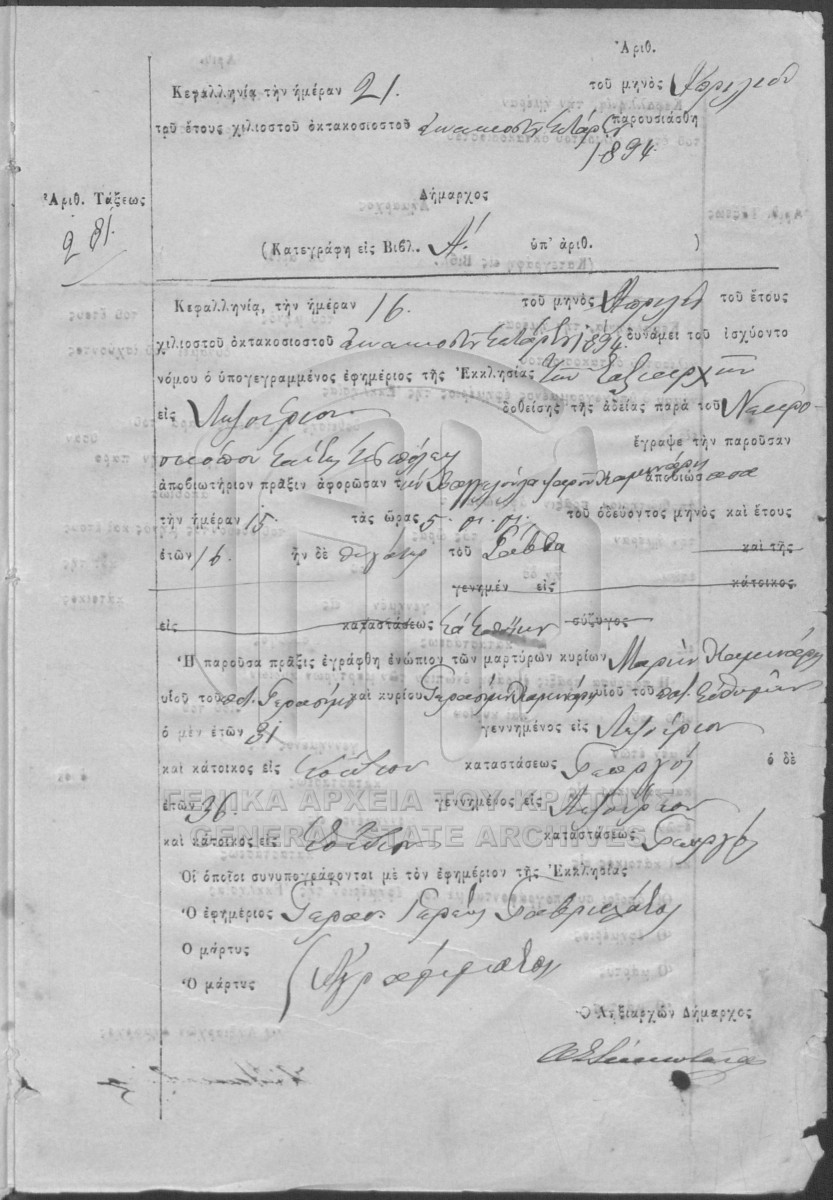 Ἀριθ.
Κεφαλληνίᾳ τὴν ἡμέραν 21. τοῦ μηνὸς Ἀπριλίου
τοῦ ἔτους χιλιοστοῦ ὀκτακοσιοστοῦ παρουσιάσθη
1894
Ἀριθ. Τάξεως Δήμαρχος
281.
(Κατεγράφη εἰς Βιβλ. Α΄. ὑπ' ἀριθ. )
Κεφαλληνίᾳ, τὴν ἡμέραν 16 τοῦ μηνὸς Ἀπριλίου τοῦ ἔτους
χιλιοστοῦ ὀκτακοσιοστοῦ 1894. δυνάμει τοῦ ἰσχύοντο
νόμου ὁ ὑπογεγραμμένος ἐφημέριος τῆς Ἐκκλησίας τῶν Ταξιαρχῶν
εἰς Ληξούριον δοθείσης τῆς ἀδείας παρὰ τοῦ Νεκρο-
σκόπου ἔγραψε τὴν παροῦσαν
ἀποβιωτήριον πρᾶξιν ἀφορῶσαν τὴν ἀποβιώσασα
τὴν ἡμέραν 15. τὰς ὥρας 5. π. μ. τοῦ ὁδεύοντος μηνὸς καὶ ἔτους
ἐτῶν 16 ἦν δὲ θυγάτηρ τοῦ Σάββα καὶ τῆς
γενημέν εἰς κάτοικος
εἰς καταστάσεως σύζυγος
Ἡ παροῦσα πρᾶξις ἐγράφθη ἐνώπιον τῶν μαρτύρων κυρίων Μαρίνου Καμινάρη
υἱοῦ τοῦ ποτ. Γερασίμου καὶ κυρίου Γερασίμου Καμινάρη υἱοῦ τοῦ ποτ. Εὐθυμίου
ὁ μὲν ἐτῶν 31 γεννημένος εἰς Ληξούριον
καὶ κάτοικος εἰς καταστάσεως Γεωργός ὁ δὲ
ἐτῶν 36. γεννημένος εἰς Ληξούριον
καὶ κάτοικος εἰς καταστάσεως Γεωργός
Οἱ ὁποῖοι συνυπογράφονται μὲ τὸν ἐφημέριον τῆς Ἐκκλησίας
Ὁ ἐφημέριος Γεράσ. Ἱερεὺς
Ὁ μάρτυς
Ὁ μάρτυς Ἀγράμματοι
Ὁ Ληξιαρχῶν Δήμαρχος
ΓΕΝΙΚΑ ΑΡΧΕΙΑ ΤΟΥ ΚΡΑΤΟΥΣ
GENERAL STATE ARCHIVES